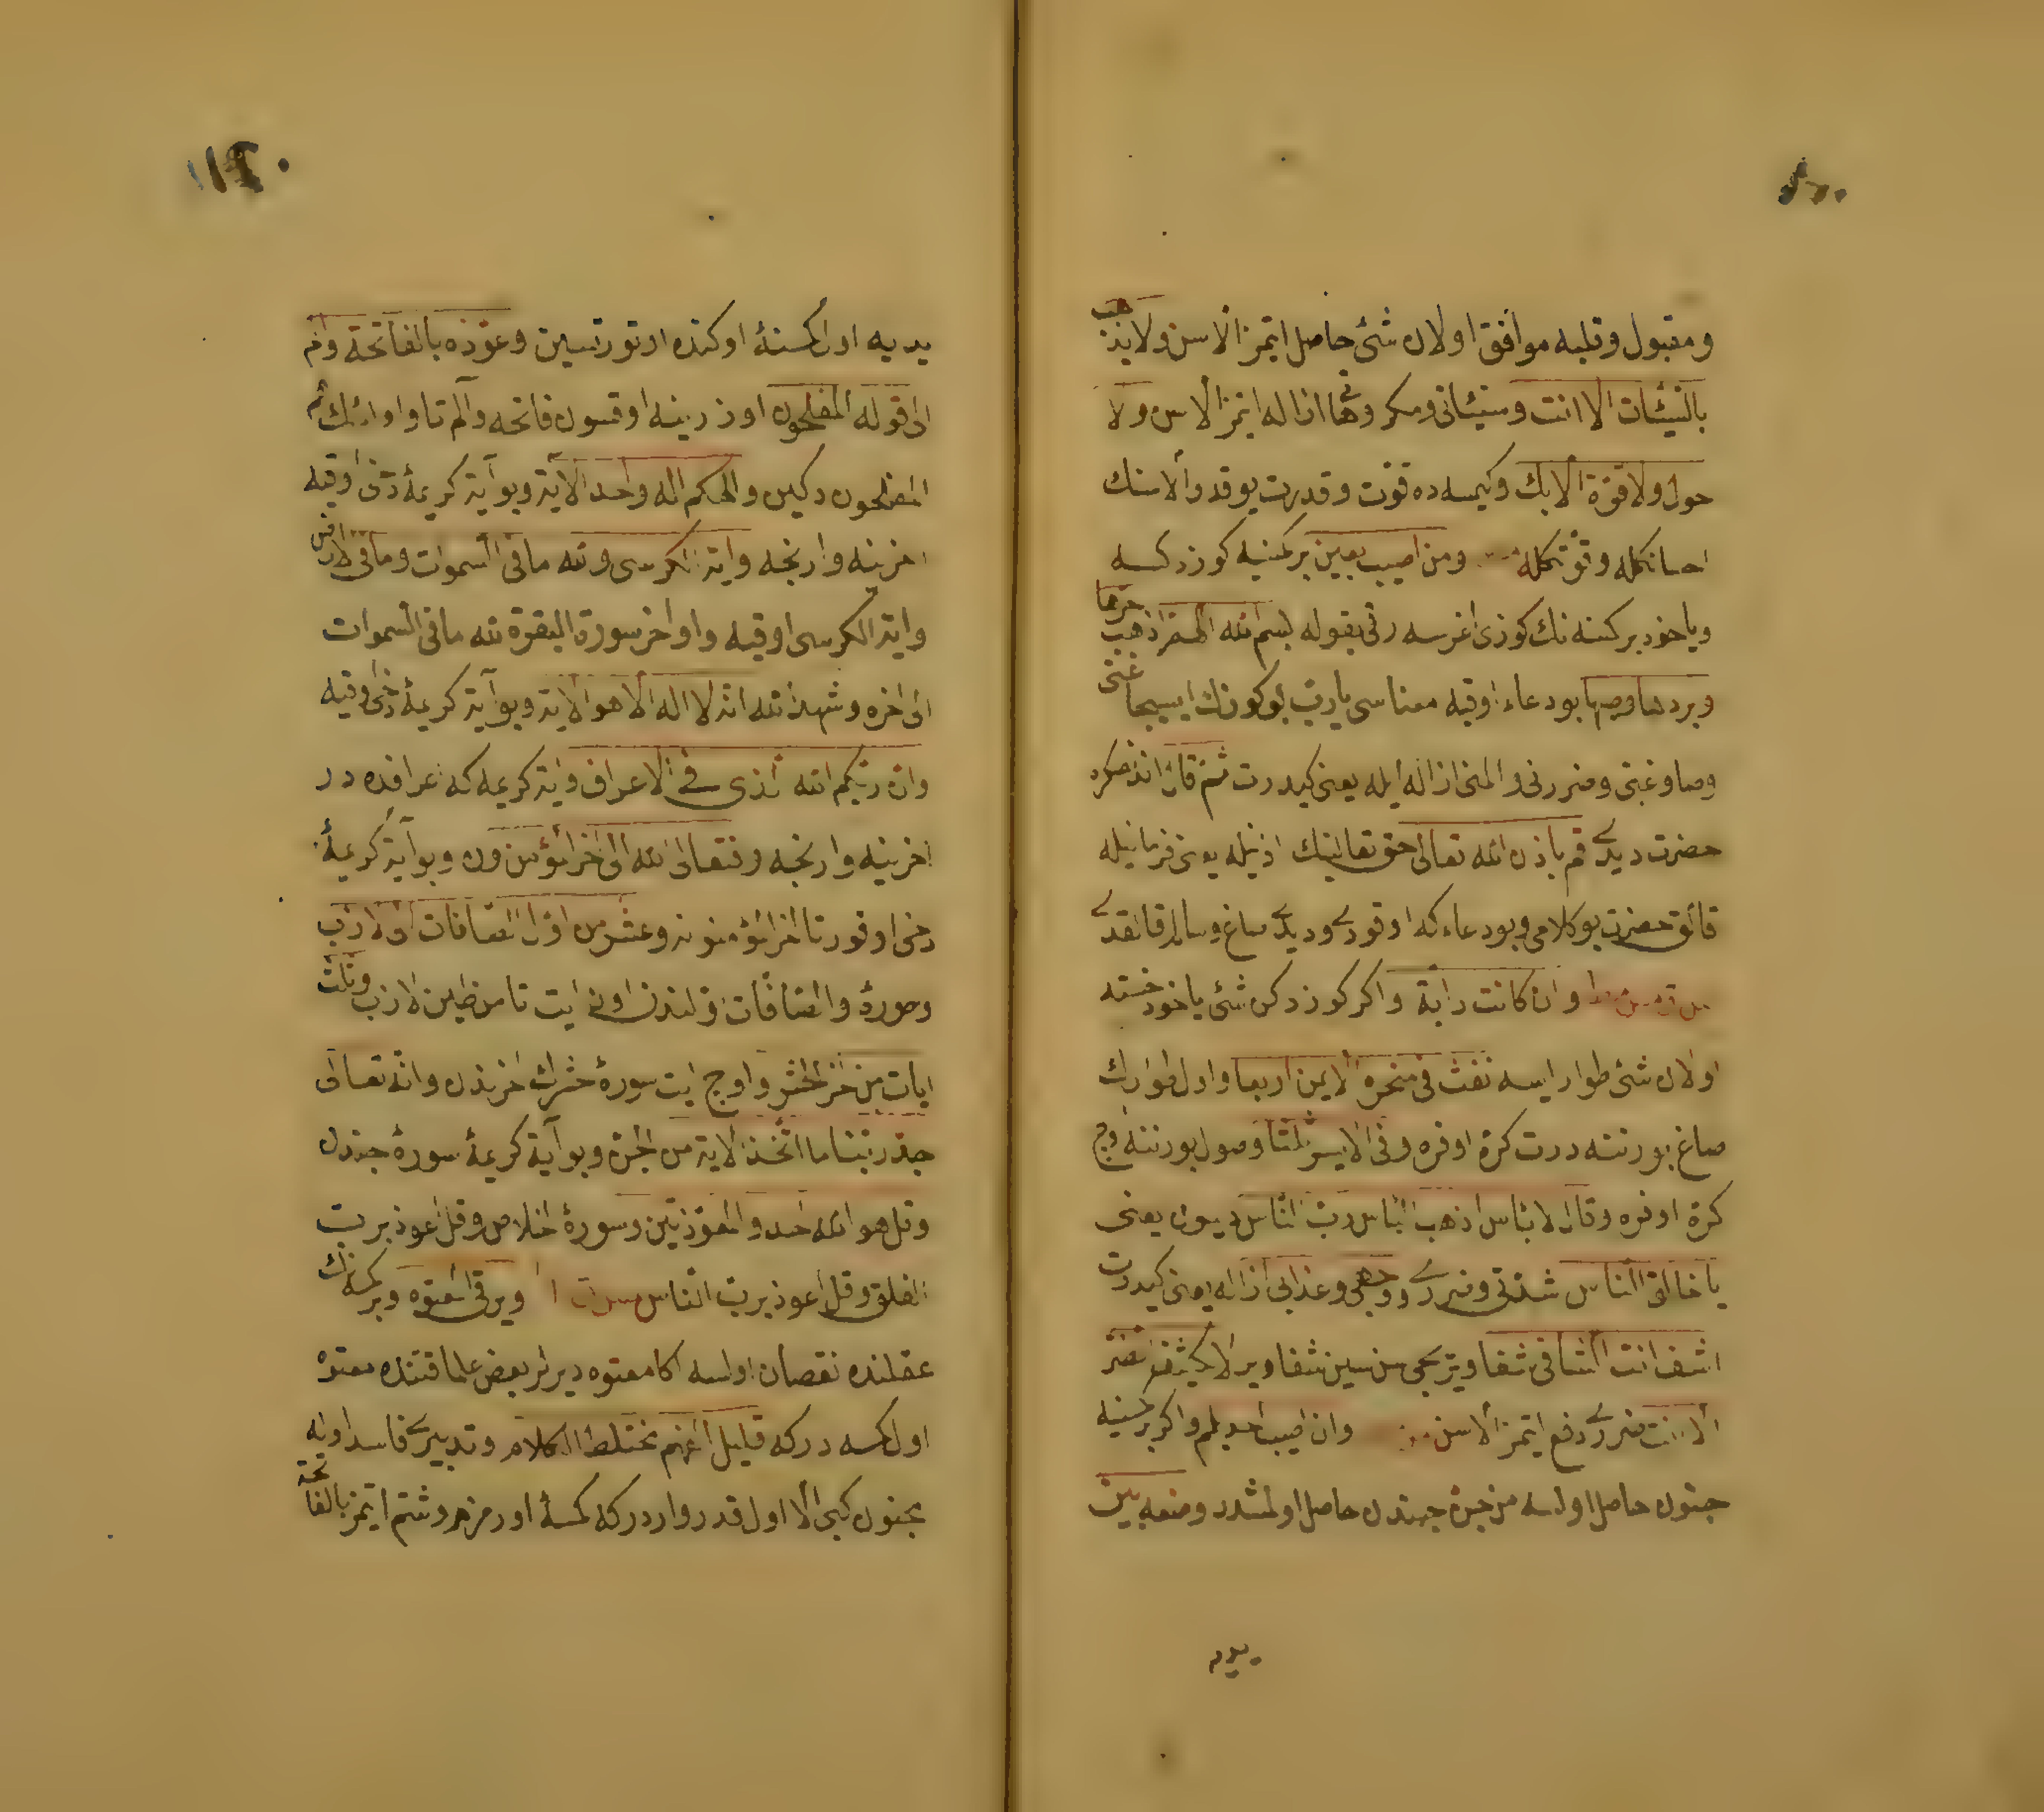 ومقبول وقلبه موافق اولان شئ حاصل ايتمز الا سن ولا يذهب
بالسّيّئات الا انت وسيئاتى ومكروهاتى ازاله ايتمز الا سن ولا
حول ولا قوّة الا بك وكيمسه ده قوّت وقدرت يوقدر الا سنك
احسانكله وقوّتكله ومن اصيب بعين بر كمسنيه كوز دكسه
وياخود بر كمسنه نك كوزى اغرسه رقى بقوله بسم الله اللهم اذهب حرّها
وبردها ووصبها بو دعاء اوقيه معناسى يا ربّ بو كوزك ايسيجاغنى
وصاوغنى وضررنى والمنى ازاله ايله يعنى كيدرت ثمّ قال اندنصكره
حضرت ديدى قم باذن الله تعالى حق تعالينك اذنيله يعنى فرمانيله
قالق حضرت بو كلامى وبو دعاء كه اوقودى وديدى صاغ وسالم قالقدى
وان كانت دابّة واكر كوز دكن شئ ياخود خسته
اولان شئ طوار ايسه نفث فى منخره الايمن اربعا واول طوارك
صاغ بورننه درت كرّة اوفره وفى الايسر ثلثا وصول بورننه اوچ
كرّة اوفره وقال لا باس اذهب الباس ربّ النّاس ديسون يعنى
يا خالق النّاس شدّتى وضررى ووجعى وعذابى ازاله يعنى كيدرت
اشف انت الشّافى شفا ويريجى سن سين شفا وير لا يكشف الضّرّ
الا انت ضررى دفع ايتمز الا سن وان اصيب احد بلمم واكر بر كمسنيه
جنون حاصل اولسه من جنّ جندن حاصل اولمشدر وضعه بين
يديه
يديه اول كمسنهٔ اوكنده اوتورتسين وعوّذه بالفاتحة والم
الى قوله المفلحون اوزرينه اوقسون فاتحه والم تا واولئك هم
المفلحون دكين والهكم اله واحد الاية وبو آية كريمهٔ دخى اوقيه
اخرينه وارنجه واية الكرسى ولله ما فى السموات وما فى الارض
واية الكرسى اوقيه واواخر سورة البقرة لله ما فى السموات
الى اخره وشهد الله انه لا اله الا هو الاية وبو آية كريمهٔ دخى اوقيه
وان ربّكم الله الّذى فى الاعراف واية كريمه كه اعرافده در
اخرينه وارنجه وفتعالى الله الى اخر المؤمنون وبو آية كريمهٔ
دخى اوقور تا اخر المؤمنونه وعشر من اوّل الصّافات الى لازب
وسورهٔ والصّافات اوّلندن اون ايت تا من طين لازب وثلث
ايات من اخر الحشر واوچ ايت سورهٔ حشرك اخرندن وانه تعالى
جدّ ربّنا ما اتّخذ الاية من الجنّ وبو آية كريمهٔ سورهٔ جندن
وقل هو الله احد والمعوّذتين وسورهٔ اخلاص وقل اعوذ بربّ
الفلق وقل اعوذ بربّ النّاس ويرقى المعتوه وبر كمسه نك
عقلنده نقصان اولسه اكا معتوه ديرلر بعض علما قتنده معتوه
اول كمسه دركه قليل الفهم مختلط الكلام وتدبيرى فاسد اوله
مجنون كبى الا اول قدر وار دركه كمسهٔ اورمز وشتم ايتمز بالفاتحة